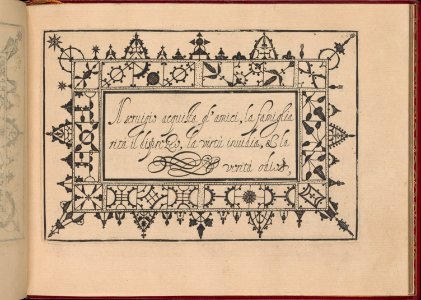 Il seruigio acquista gl'amici, la famiglia
rità il dispreggio, la uirtù inuidia, & la
uerità odio,